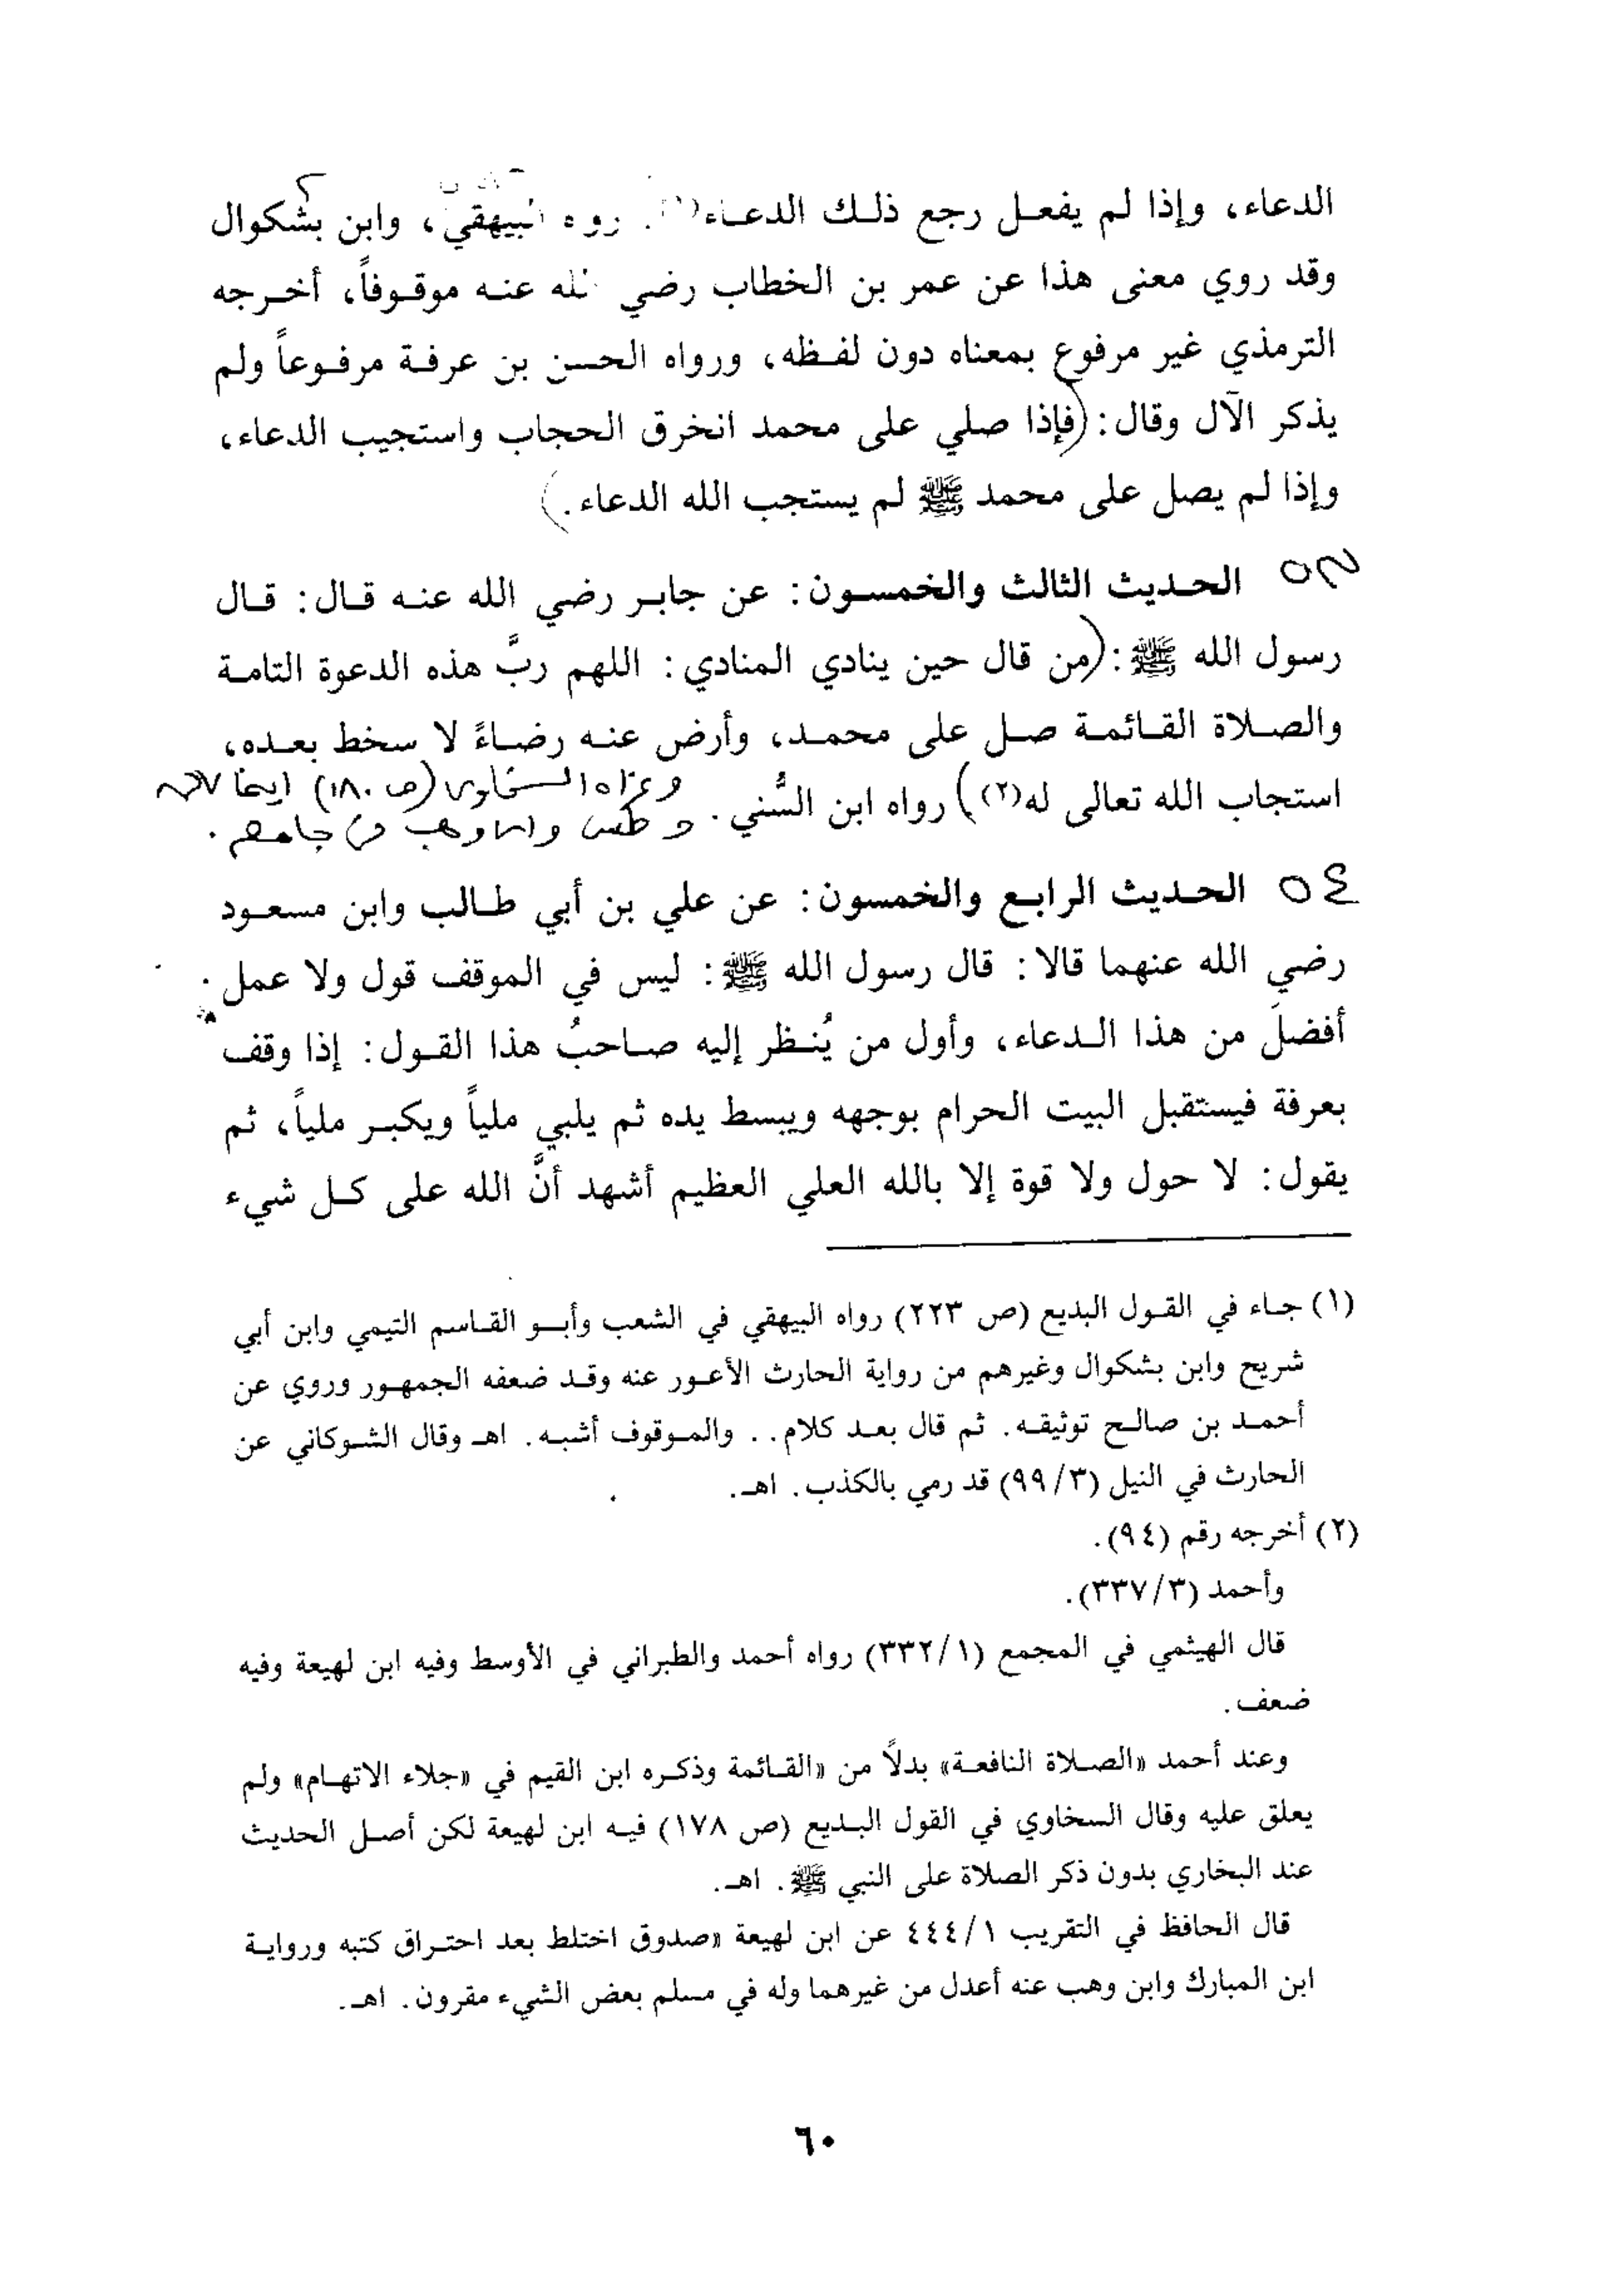 الدعاء، وإذا لم يفعل رجع ذلك الدعاء(١). رواه البيهقي، وابن بشكوال
وقد روي معنى هذا عن عمر بن الخطاب رضي الله عنه موقوفاً، أخرجه
الترمذي غير مرفوع بمعناه دون لفظه، ورواه الحسن بن عرفة مرفوعاً ولم
يذكر الآل وقال: (فإذا صلي على محمد انخرق الحجاب واستجيب الدعاء،
وإذا لم يصل على محمد ﷺ لم يستجب الله الدعاء.)
٥٣ الحديث الثالث والخمسون: عن جابر رضي الله عنه قال: قال
رسول الله ﷺ: (من قال حين ينادي المنادي: اللهم ربَّ هذه الدعوة التامة
والصلاة القائمة صل على محمد، وأرض عنه رضاءً لا سخط بعده،
استجاب الله تعالى له(٢)) رواه ابن السُّني. وعزاه السخاوي (ص ١٨٠) أيضا
وابن وهب في جامعه.
٥٤ الحديث الرابع والخمسون: عن علي بن أبي طالب وابن مسعود
رضي الله عنهما قالا: قال رسول الله ﷺ: ليس في الموقف قول ولا عمل
أفضلَ من هذا الدعاء، وأول من يُنظر إليه صاحبُ هذا القول: إذا وقف
بعرفة فيستقبل البيت الحرام بوجهه ويبسط يده ثم يلبي ملياً ويكبر ملياً، ثم
يقول: لا حول ولا قوة إلا بالله العلي العظيم أشهد أنَّ الله على كل شيء
(١) جاء في القول البديع (ص ٢٢٣) رواه البيهقي في الشعب وأبو القاسم التيمي وابن أبي
شريح وابن بشكوال وغيرهم من رواية الحارث الأعور عنه وقد ضعفه الجمهور وروي عن
أحمد بن صالح توثيقه. ثم قال بعد كلام.. والموقوف أشبه. اهـ وقال الشوكاني عن
الحارث في النيل (٩٩/٣) قد رمي بالكذب. اهـ.
(٢) أخرجه رقم (٩٤).
وأحمد (٣٣٧/٣).
قال الهيثمي في المجمع (٣٣٢/١) رواه أحمد والطبراني في الأوسط وفيه ابن لهيعة وفيه
ضعف.
وعند أحمد «الصلاة النافعة» بدلاً من «القائمة وذكره ابن القيم في «جلاء الاتهام» ولم
يعلق عليه وقال السخاوي في القول البديع (ص ١٧٨) فيه ابن لهيعة لكن أصل الحديث
عند البخاري بدون ذكر الصلاة على النبي ﷺ. اهـ.
قال الحافظ في التقريب ٤٤٤/١ عن ابن لهيعة «صدوق اختلط بعد احتراق كتبه ورواية
ابن المبارك وابن وهب عنه أعدل من غيرهما وله في مسلم بعض الشيء مقرون. اهـ.
٦٠